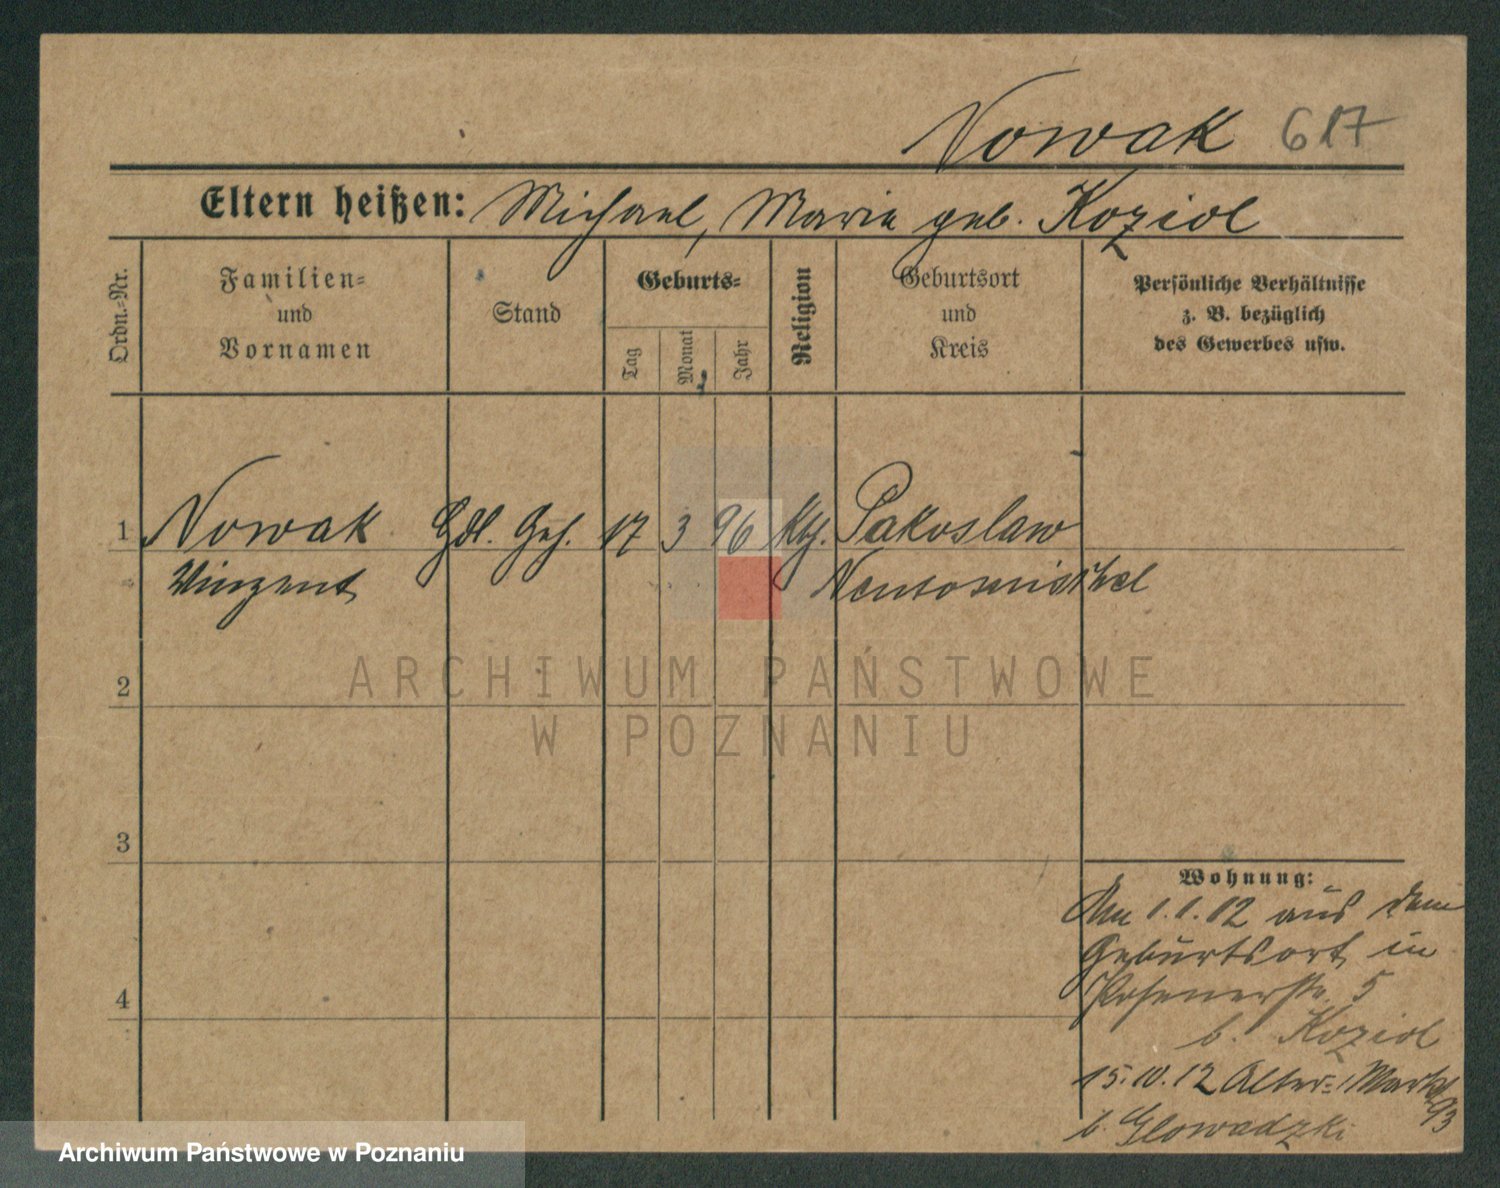 Nowak 617
Eltern heißen: Michael, Marie geb. Koziol
Ordn.-Nr.
Familien-
und
Vornamen
Stand
Geburts-
Tag
Monat
Jahr
Religion
Geburtsort
und
Kreis
Persönliche Verhältnisse
z. B. bezüglich
des Gewerbes usw.
1 Nowak Hdl. Geh. 17 3 96 kth. Pakoslaw
Vinzent Neutomischel
2
3
4
Wohnung:
Am 1.1.12 aus dem
Geburtsort in
Posenerstr. 5
b. Koziol
15.10.12 Alter-Markt
93
b. Glowadzki
ARCHIWUM PAŃSTWOWE
W POZNANIU
Archiwum Państwowe w Poznaniu